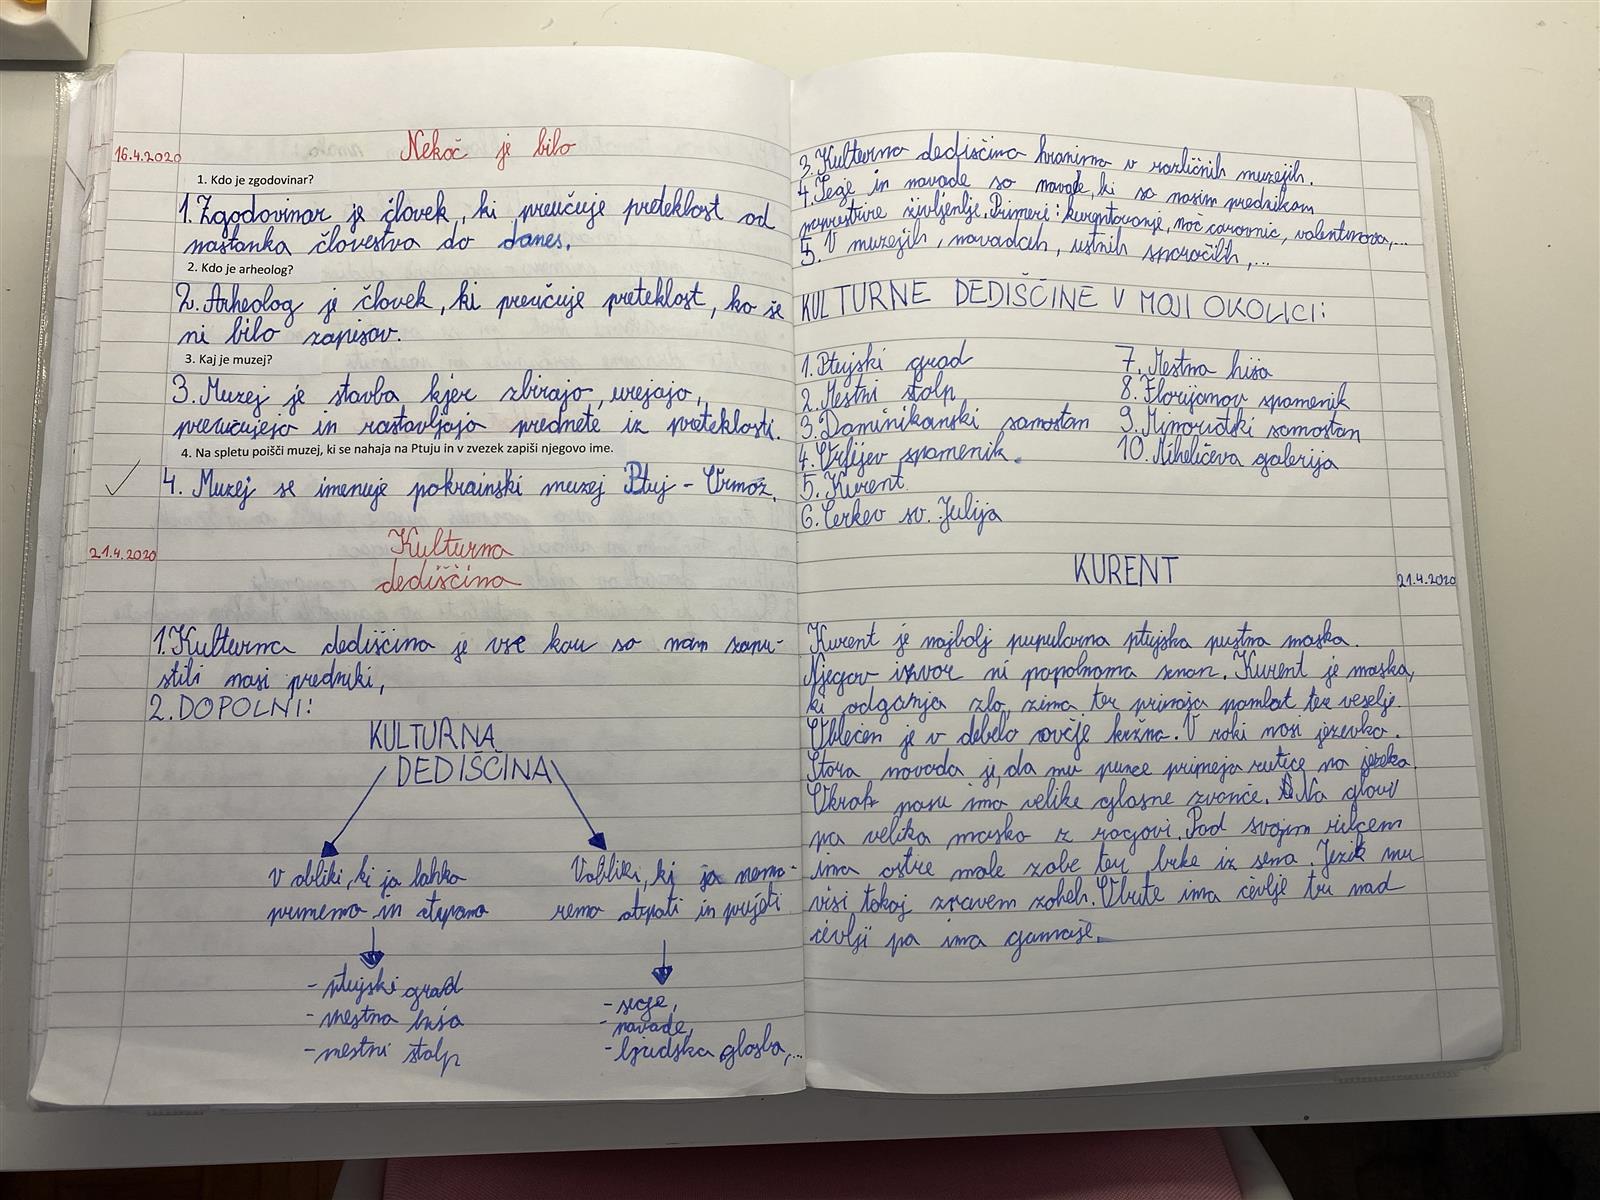 16.4.2020
Nekoč je bilo
1. Kdo je zgodovinar?
1. Zgodovinar je človek, ki preučuje preteklost od
nastanka človestva do danes.
2. Kdo je arheolog?
2. Arheolog je človek, ki preučuje preteklost, ko še
ni bilo zapisov.
3. Kaj je muzej?
3. Muzej je stavba kjer zbirajo, urejajo,
preučujejo in rastavljajo predmete iz preteklosti.
4. Na spletu poišči muzej, ki se nahaja na Ptuju in v zvezek zapiši njegovo ime.
4. Muzej se imenuje pokrainski muzej Ptuj - Ormož.
21.4.2020
Kulturna
dediščina
1. Kulturna dediščina je vse kar so nam zapu-
stili nasi predniki,
2. DOPOLNI:
KULTURNA
DEDIŠČINA
v obliki, ki jo lahko
primemo in otipamo
V obliki, ki jo nemo-
remo otipati in prijeti
- ptujski grad
- mestna hiša
- mestni stolp
- sege,
- navade,
- ljudska glasba,...
3. Kulturno dediščino hranimo v različnih muzejih.
4. Šege in navade so navade, ki so nasim prednikom
popestrire življenje. Primeri: kurentovanje, noč čarovnic, valentinova,...
5. V muzejih, navadah, ustnih sporočilih,...
KULTURNE DEDIŠČINE V MOJI OKOLICI:
1. Ptujski grad
2. Mestni stolp
3. Dominikanski samostan
4. Orfejev spomenik.
5. Kurent
6. Cerkev sv. Jurija
7. Mestna hiša
8. Florijanov spomenik
9. Minoritski samostan
10. Miheličeva galerija
KURENT
21.4.2020
Kurent je najbolj pupularna ptujska pustna maska.
Njegov izvor ni popolnoma znan. Kurent je maska,
ki odganja zlo, zimo ter prinaša pomlad ter veselje.
Oblečen je v debelo ovčje kožno. V roki nosi ježevko.
Stara navada je, da mu punce primejo rutice na ježevko.
Okrok pasu ima velike glasne zvonce. Na glavi
pa veliko masko z rogovi. Pod svojim rilcem
ima ostre male zobe ter brke iz sena. Jezik mu
visi tokoj zraven zobeh. Obute ima čevlje ter nad
čevlji pa ima gamaše.